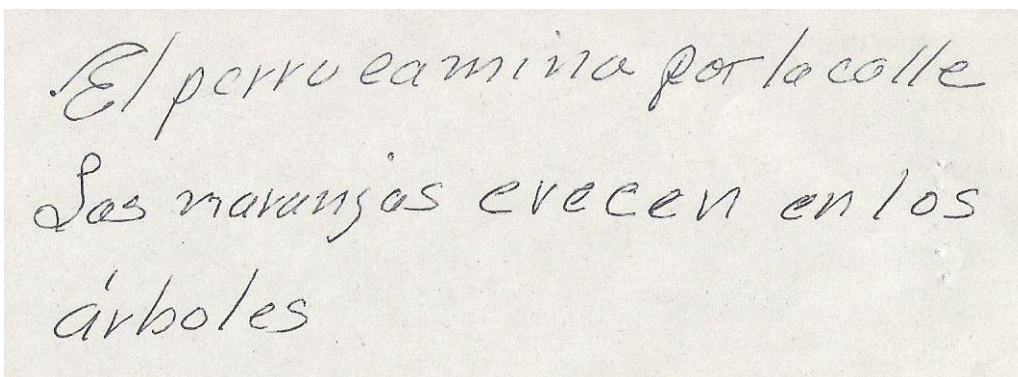 El perro camina por la calle
Las naranjas crecen en los
árboles